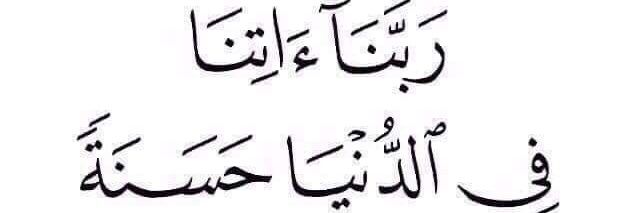 رَبَّنَآ ءَاتِنَا
فِى ٱلدُّنْيَا حَسَنَةً